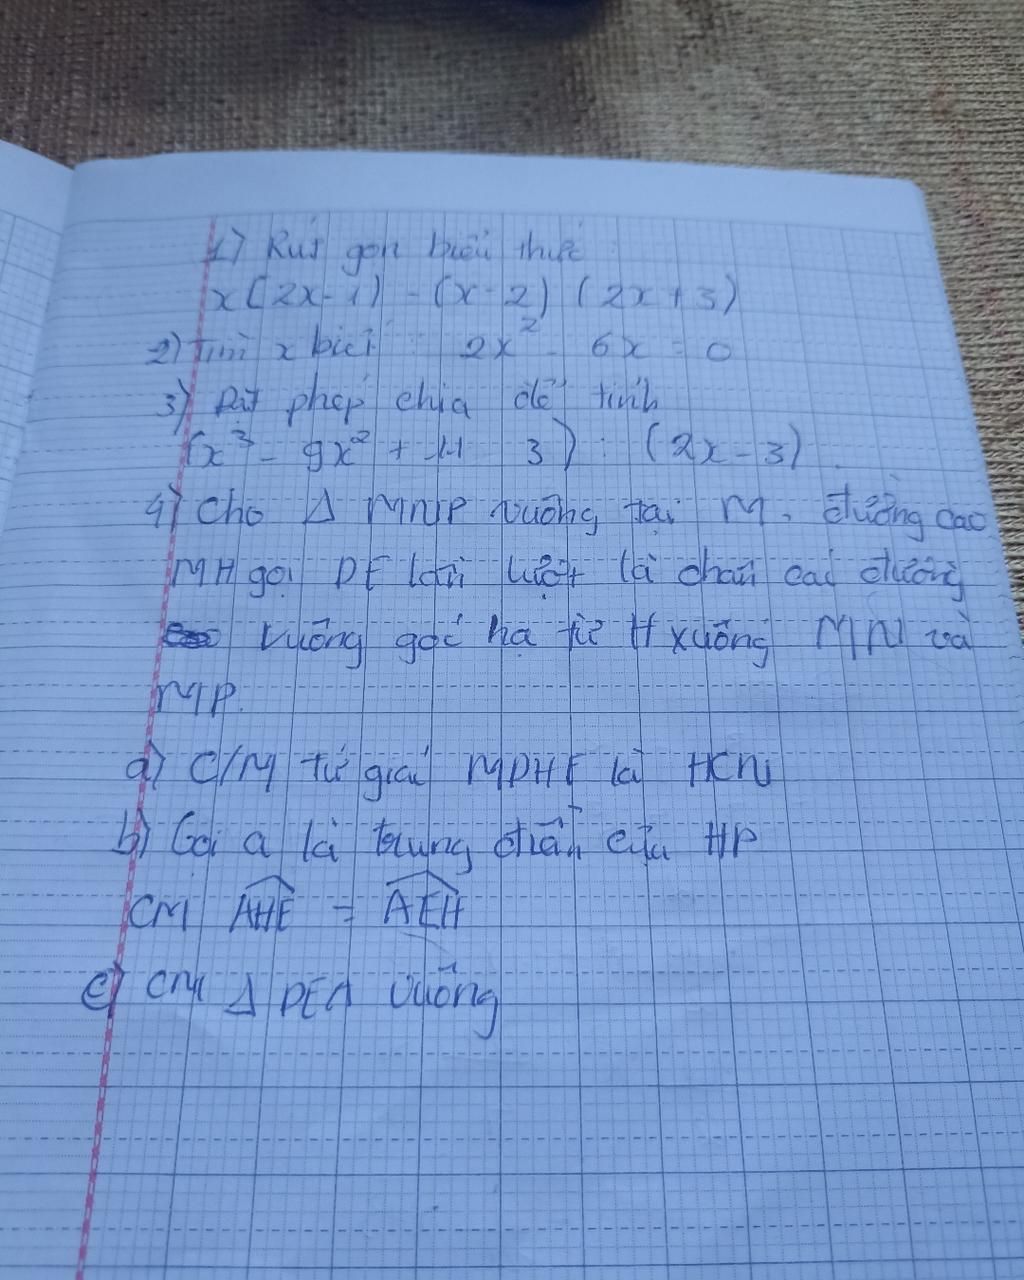 1) Rút gọn biểu thức
x(2x-1) - (x-2) (2x+3)
2) Tìm x biết 2x² - 6x = 0
3) Đặt phép chia để tính
(x³ - 9x² + 11 3) : (2x-3)
4) Cho Δ MNP vuông tại M. đường cao
MH gọi DE lần lượt là chân các đường
vuông góc hạ từ H xuống MN và
MP.
a) C/M tứ giác MDHE là HCN
b) Gọi a là trung điểm của HP
CM AHE = AEH
c) CM Δ DEA vuông